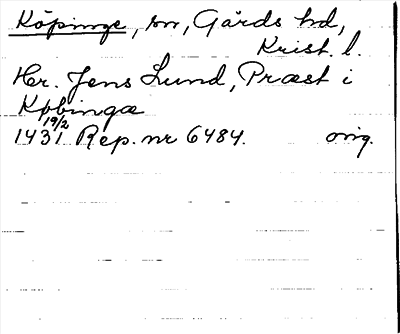 Köpinge, sn, Gärds hd,
Krist. l.
Hr. Jens Lund, Præst i
Købingæ
1431 19/2 Rep. nr 6484. orig.